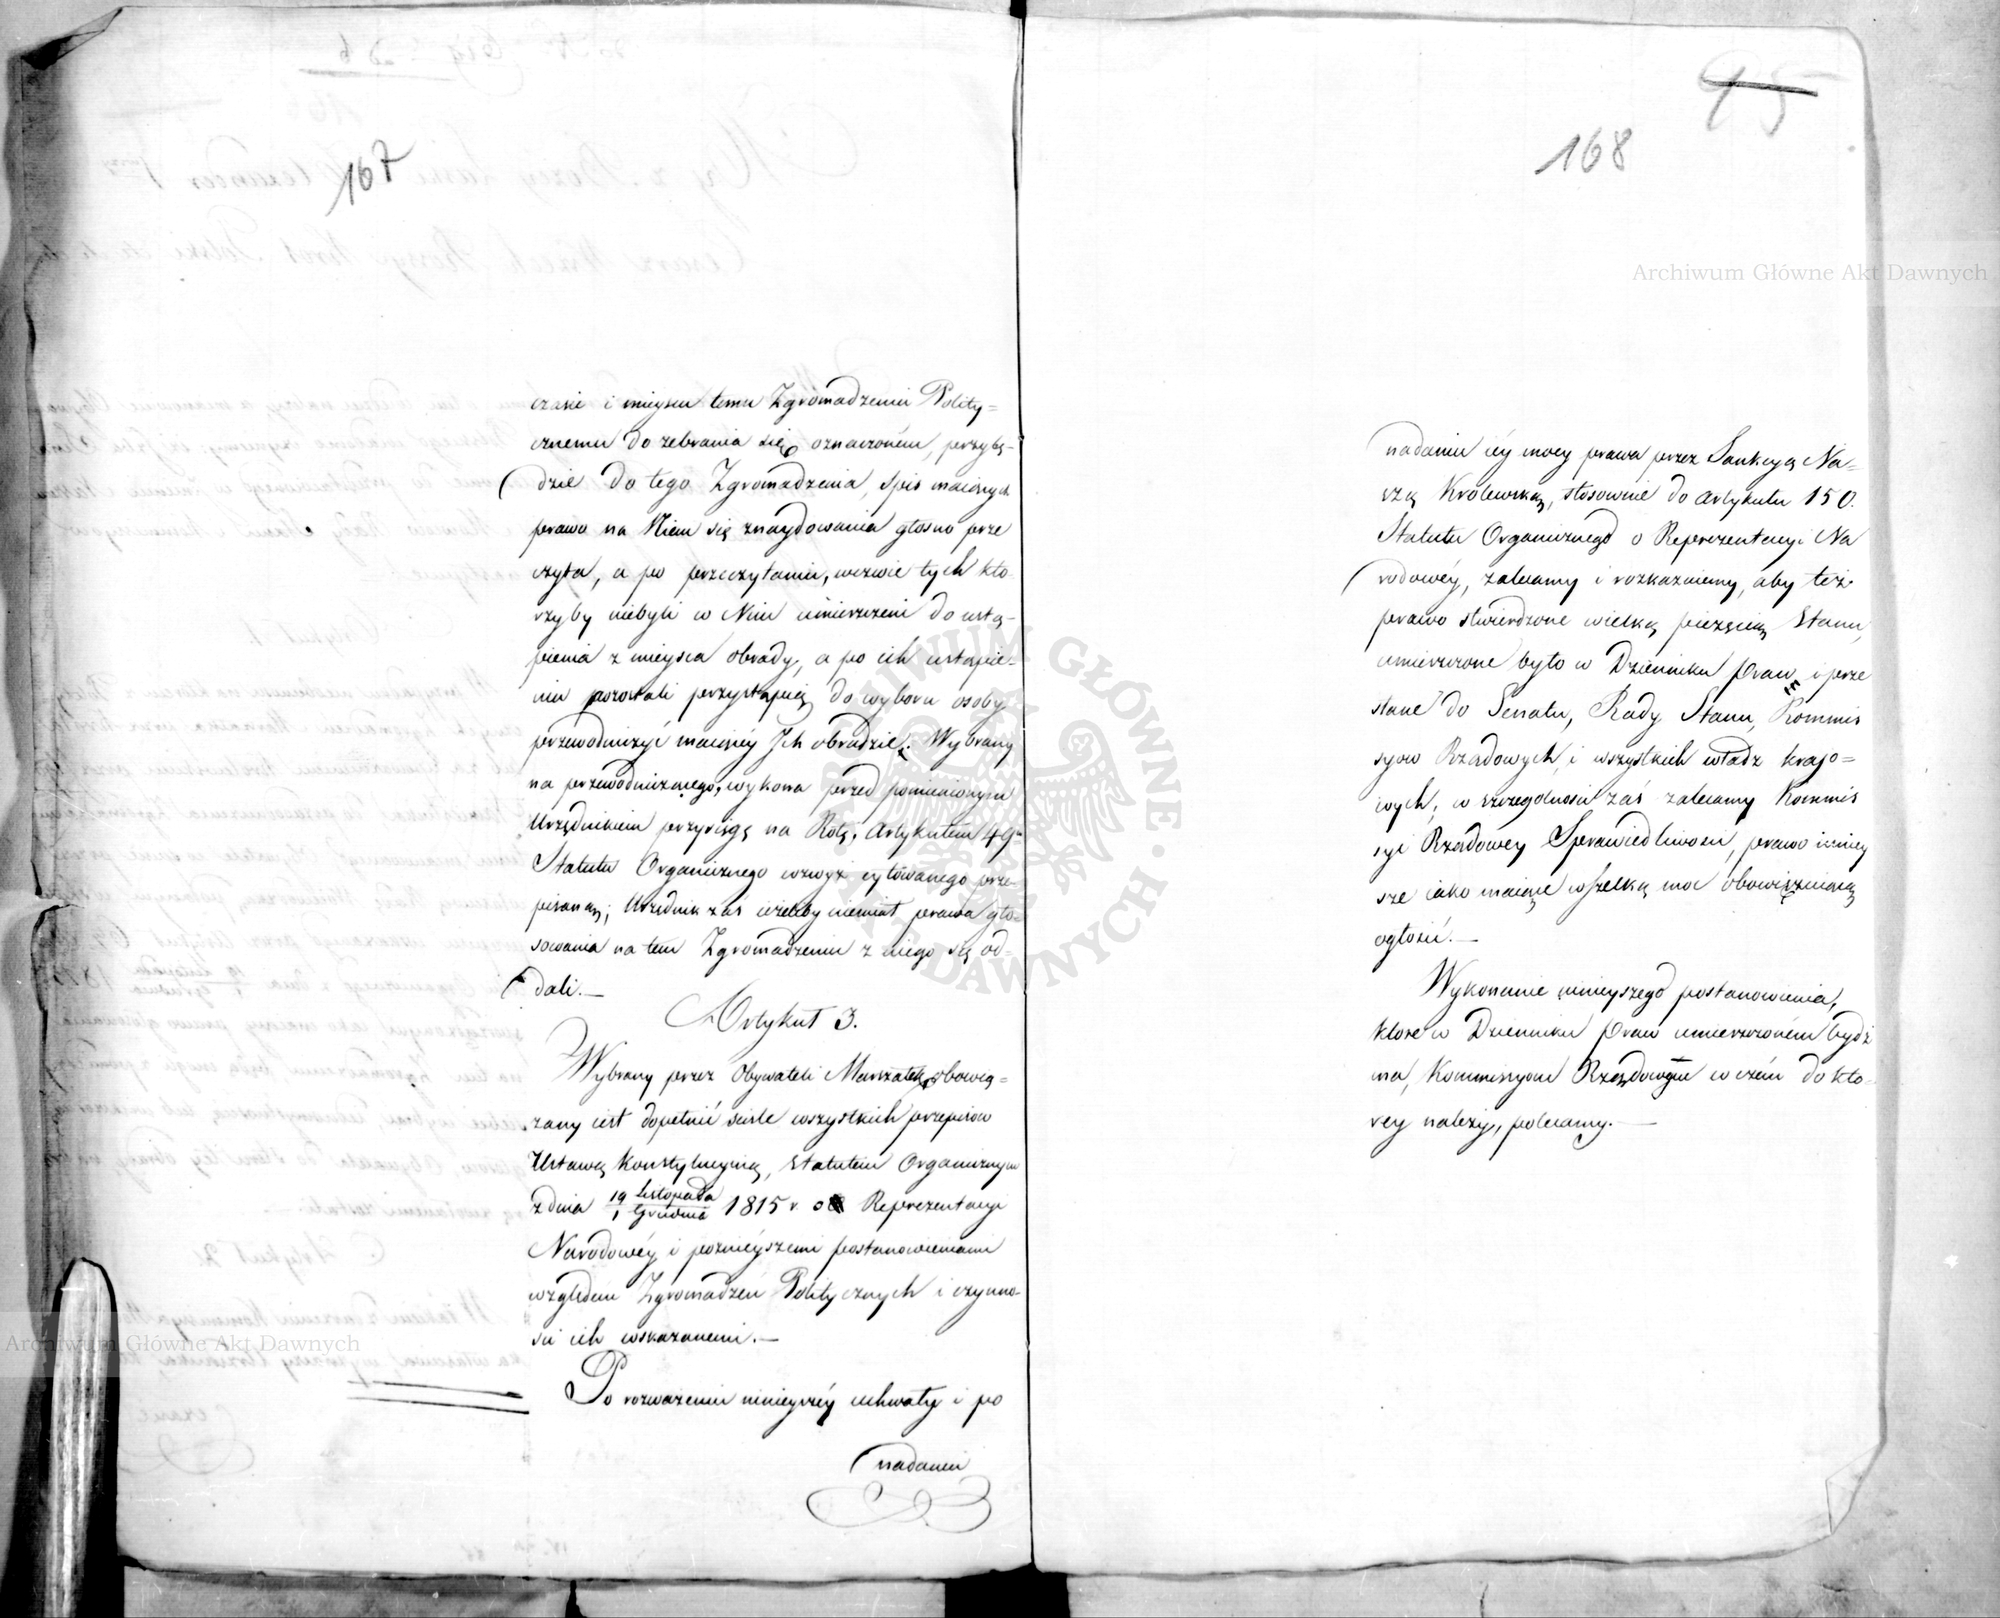 167
czasie i mieyscu temu Zgromadzeniu Polity=
cznemu do zebrania się oznaczoném, przybę=
dzie do tego Zgromadzenia, spis maiących
prawo na Niem się znaydowania głosno prze
czyta, a po przeczytaniu, wezwie tych któ
rzyby niebyli w Nim umieszczeni do ustą=
pienia z mieysca obrady, a po ich ustąpie=
niu pozostali przystąpią do wyboru osoby
przewodniczyć maiącéy Ich obradzie. Wybrany
na przewodniczącego, wykona przed pomienionym
Urzędnikiem przysięgę na Rotę, Artykułem 49m
Statutu Organicznego wzwyż cytowanego prze=
pisaną; Urzędnik zaś ieżeliby niemiał prawa gło=
sowania na tem Zgromadzeniu z niego się od=
dali.—
Artykuł 3.
Wybrany przez Obywateli Marszałek, obowią=
zany iest dopełnić ściśle wszystkich przepisów
Ustawą Konstytucyiną, Statutem Organicznym
z dnia 19 Listopada / 1 Grudnia 1815 r. o Reprezentacyi
Narodowéy i poznieyszemi postanowieniami
względem Zgromadzeń Politycznych i czynno=
ści ich wskazanemi.—
Po rozważeniu ninieyszéy uchwały i po
nadaniu
95
168
nadaniu iéy mocy prawa przez Sankcyą Na=
szą Królewską, stosownie do Artykułu 150.
Statutu Organicznego o Reprezentacyi Na
rodowéy, zalecamy i rozkazuiemy, aby toż
prawo stwierdzone wielką pieczęcią Stanu,
umieszczone było w Dzienniku Praw i prze
słane do Senatu, Rady Stanu, Kommis
syow Rządowych i wszystkich władz krajo=
wych; w szczególności zaś zalecamy Kommis
syi Rządowey Sprawiedliwości, prawo niniey
sze iako maiące wszelką moc obowiązuiącą
ogłosić.—
Wykonanie ninieyszego postanowienia,
które w Dzienniku Praw umieszczoném bydź
ma, Kommissyom Rządowym w czém do któ=
rey należy, polecamy.—
Archiwum Główne Akt Dawnych
Archiwum Główne Akt Dawnych
ARCHIWUM GŁÓWNE AKT DAWNYCH